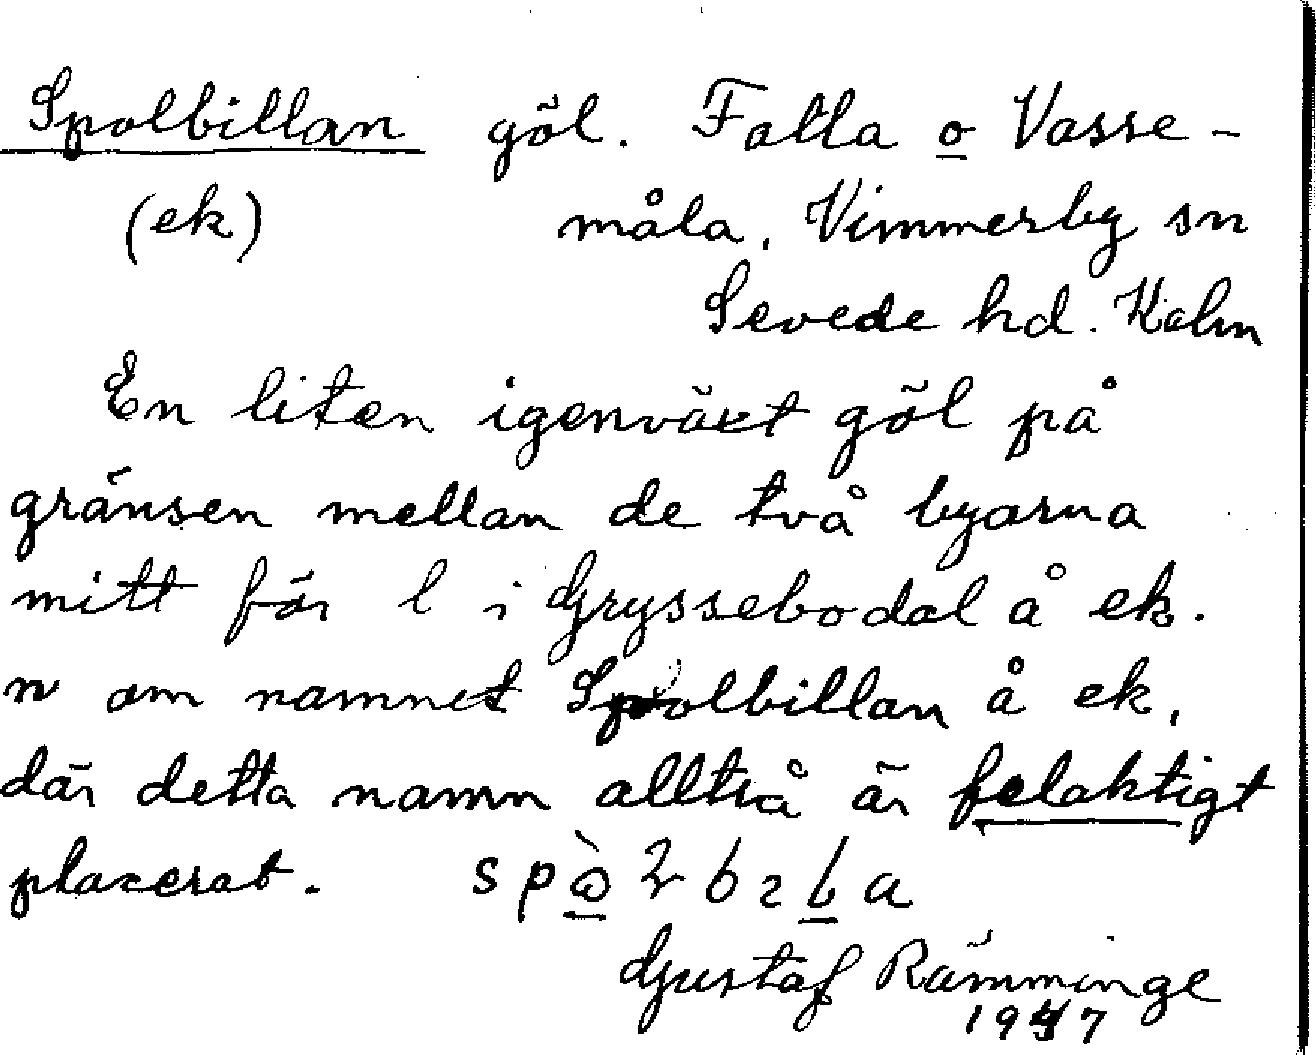 Spolbillan göl. Falla o Vasse-
(ek) måla, Vimmerby sn
Sevede hd. Kalm
En liten igenväxt göl på
gränsen mellan de två byarna
mitt för l i Gryssebodal å ek.
n om namnet Spolbillan å ek,
där detta namn alltså är felaktigt
placerat.
Gustaf Rämminge
1947